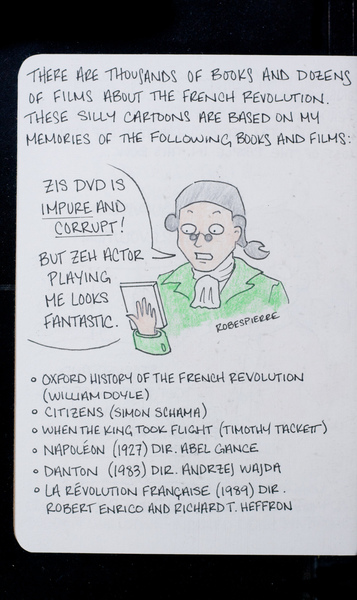 THERE ARE THOUSANDS OF BOOKS AND DOZENS
OF FILMS ABOUT THE FRENCH REVOLUTION.
THESE SILLY CARTOONS ARE BASED ON MY
MEMORIES OF THE FOLLOWING BOOKS AND FILMS:
ZIS DVD IS
IMPURE AND
CORRUPT!
BUT ZEH ACTOR
PLAYING
ME LOOKS
FANTASTIC.
ROBESPIERRE
• OXFORD HISTORY OF THE FRENCH REVOLUTION
(WILLIAM DOYLE)
• CITIZENS (SIMON SCHAMA)
• WHEN THE KING TOOK FLIGHT (TIMOTHY TACKETT)
• NAPOLÉON (1927) DIR. ABEL GANCE
• DANTON (1983) DIR. ANDRZEJ WAJDA
• LA RÉVOLUTION FRANÇAISE (1989) DIR.
ROBERT ENRICO AND RICHARD T. HEFFRON